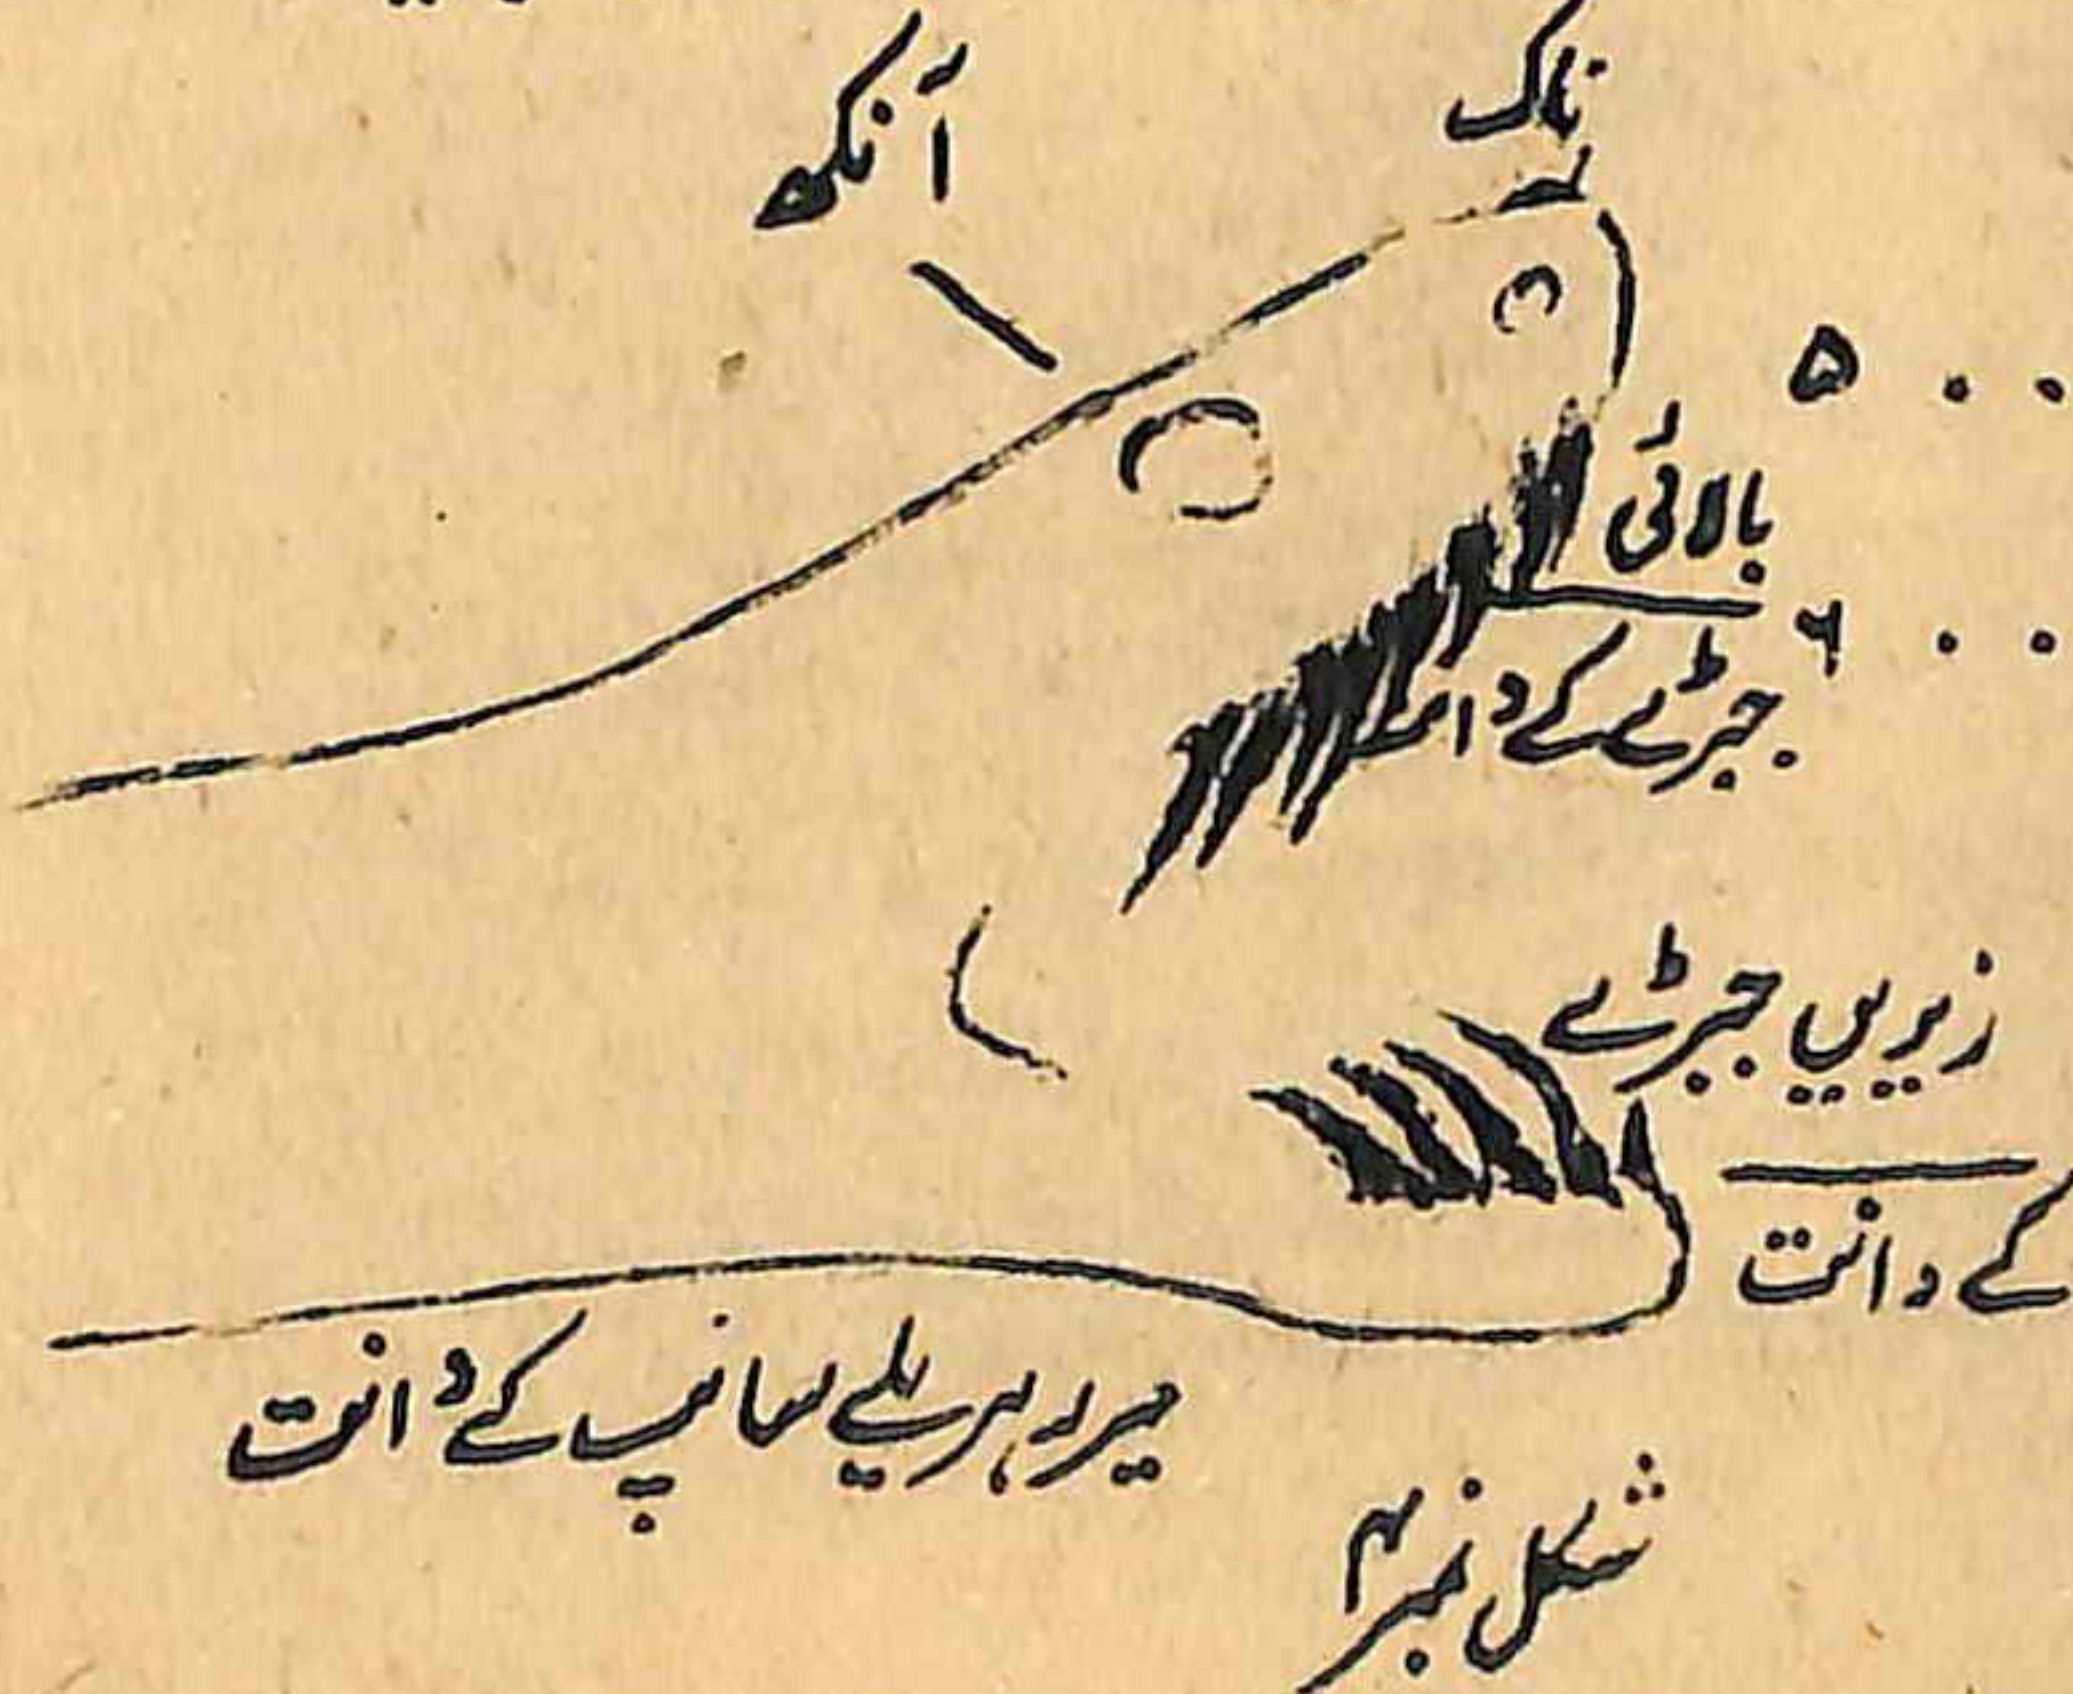 ناک
آنکھ
۵ ..
بالائی
۶ ..
جبڑے کے دانت
زیریں جبڑے
کے دانت
غیر زہریلے سانپ کے دانت
شکل نمبر ۴